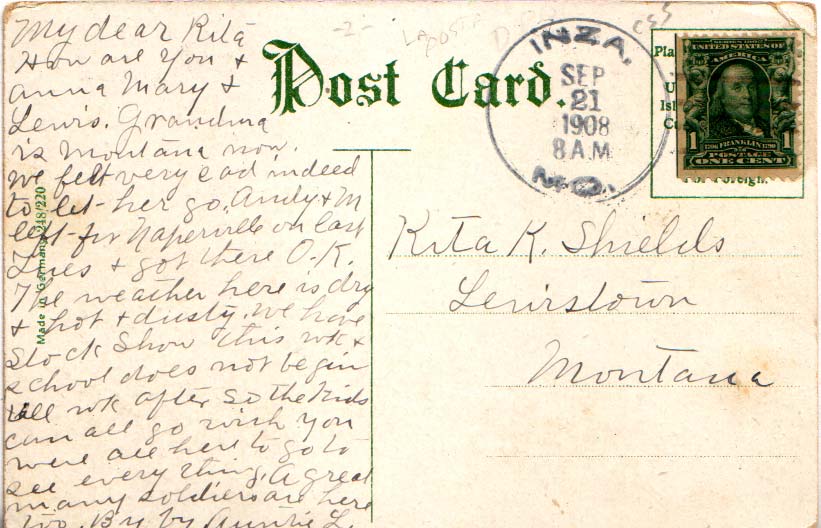 My dear Rita
How are you &
Anna Mary &
Lewis. Grandma
is Montana now.
We felt very sad indeed
to let her go. Andy & M
left for Naperville on last
Tues & got there O.K.
The weather here is dry
& hot & dusty. We have
Stock Show this wk &
school does not begin
till wk after so the kids
can all go wish you
were all here to go to
see every thing. A great
many soldiers are here
too. By by Auntie L.
Made in Germany 248/220
-2-
Post Card.
INZA,
SEP
21
1908
8 A.M
MO.
Pla
U
Isl
Cu
For Foreign.
SERIES 1902
UNITED STATES OF
AMERICA
1 1
1706 FRANKLIN 1790
POSTAGE
ONE CENT
Rita K. Shields
Lewistown
Montana